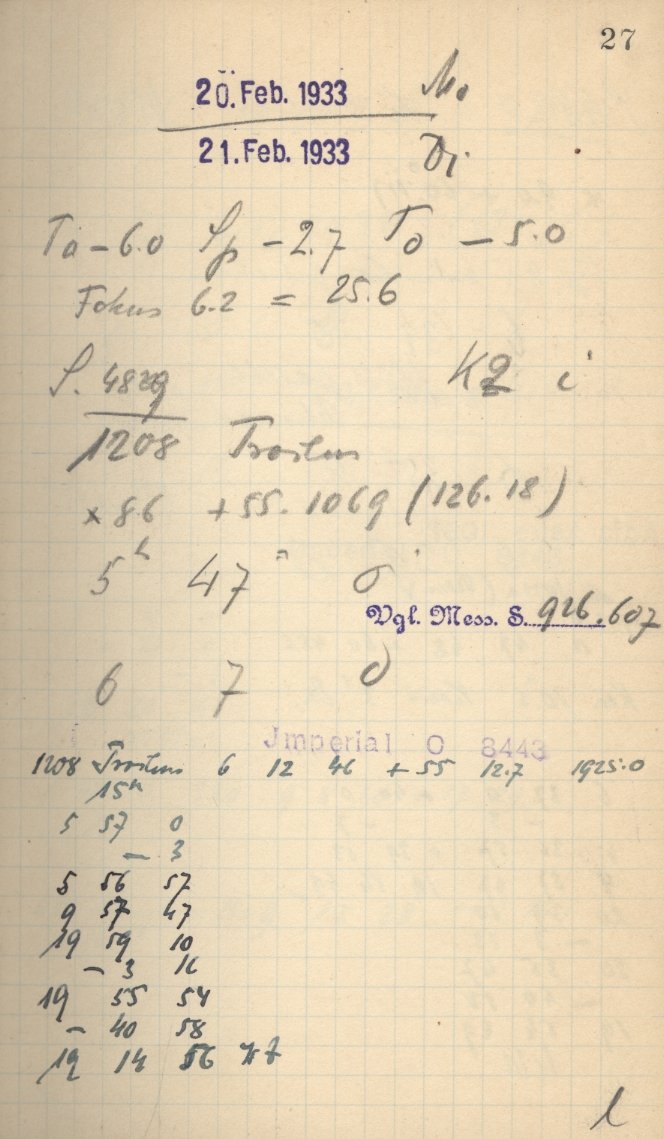 27
20. Feb. 1933 Mo
21. Feb. 1933 Di
Ta - 6.0 Sp - 2.7 To - 5.0
Fokus 6.2 = 25.6
S. 4829 K2 i
1208 Troilus
x 8.6 + 55. 1069 (126.18)
5h 47m 0
Vgl. Mess. S. 926.607
6 7 0
Imperial O 8443
1208 Troilus 6 12 46 + 55 12.7 1925.0
15m
5 57 0
- 3
5 56 57
9 57 47
19 59 10
- 3 16
19 55 54
- 40 58
19 14 56